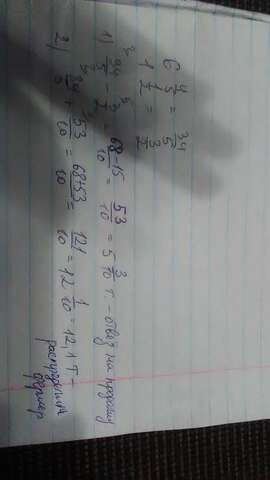 6 4/5 = 34/5
1 1/2 = 3/2
1) 34/5 - 3/2 = 68-15/10 = 53/10 = 5 3/10 т. - отвёз на продажу
2) 34/5 + 53/10 = 68+53/10 = 121/10 = 12 1/10 = 12,1 т -
распределил
фермер